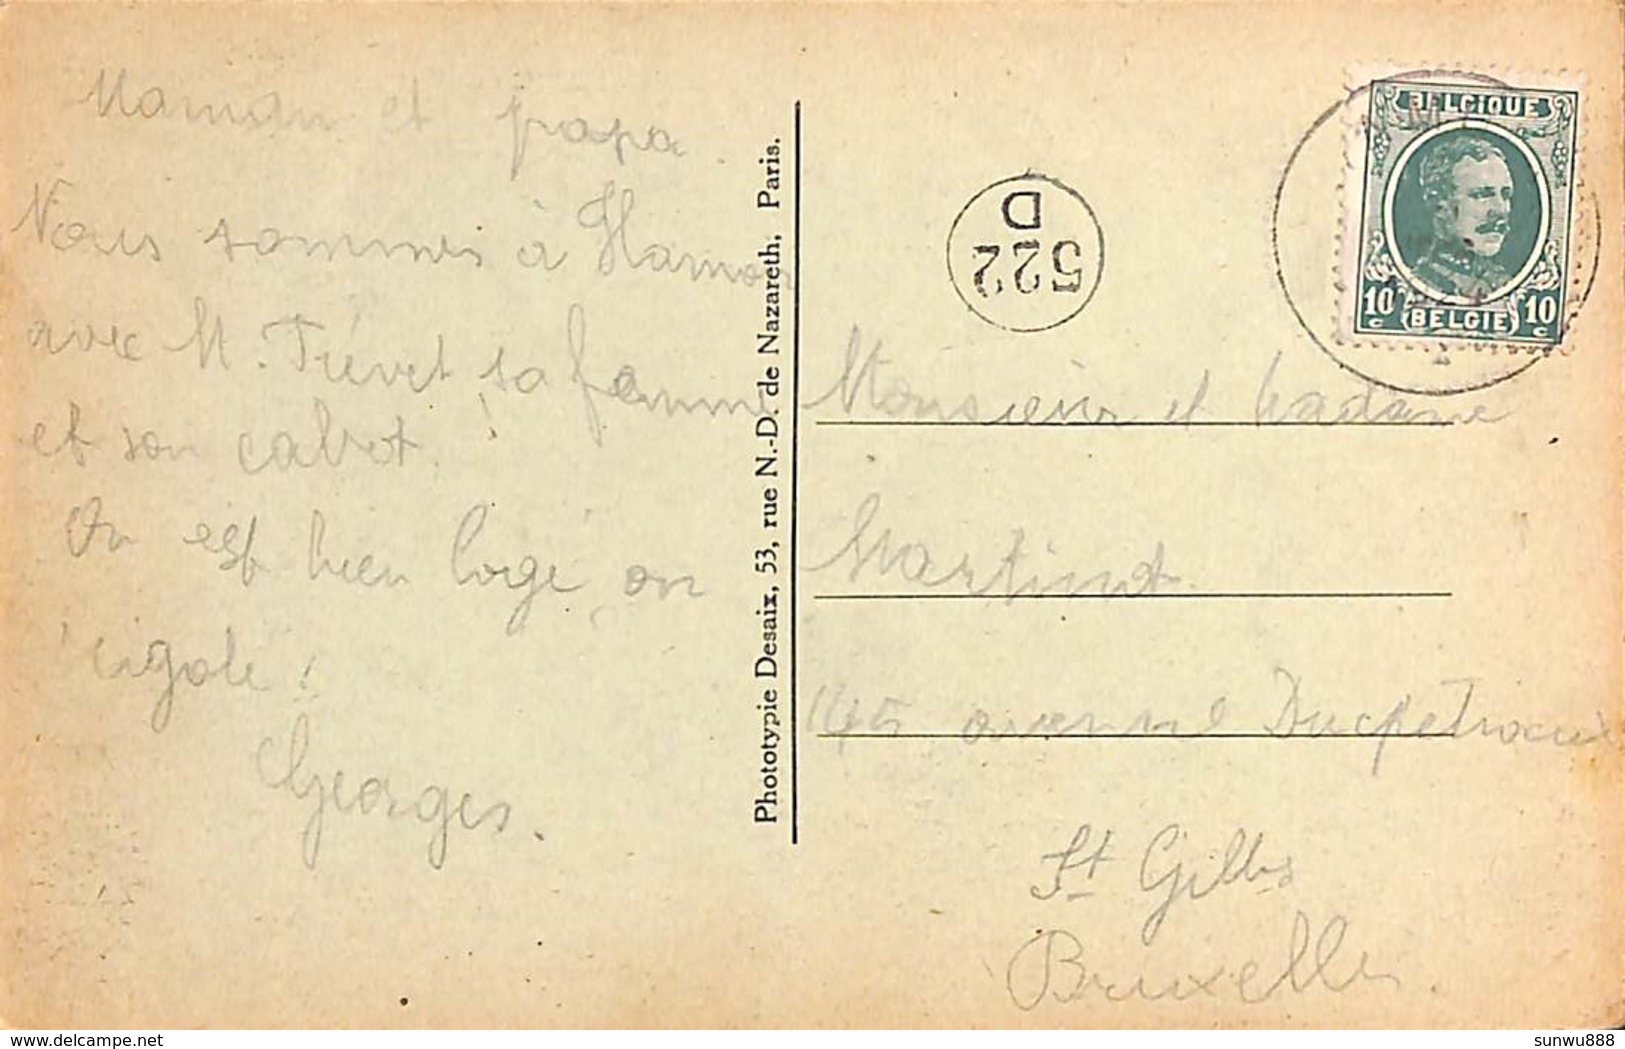 Maman et papa.
Nous sommes à Hamoir
avec M. Trévet sa femme
et son cabot !
On est bien logé, on
rigole !
Georges.
Phototypie Desaix, 53, rue N.-D. de Nazareth, Paris.
522
D
BELGIQUE
10 c BELGIE 10 c
Monsieur et Madame
Martinot.
145 avenue Ducpetiaux
St Gilles
Bruxelles.
delcampe.net
sunwu888